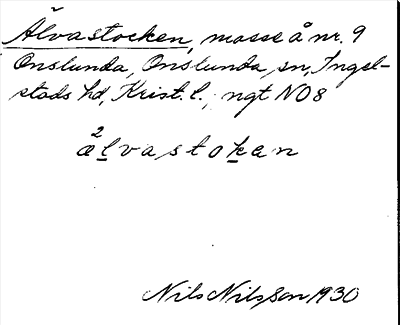 Älvastocken, mosse å nr. 9
Onslunda, Onslunda sn, Ingel-
stads hd, Krist. l., ngt NO8
2
ælvastokan
Nils Nilsson 1930